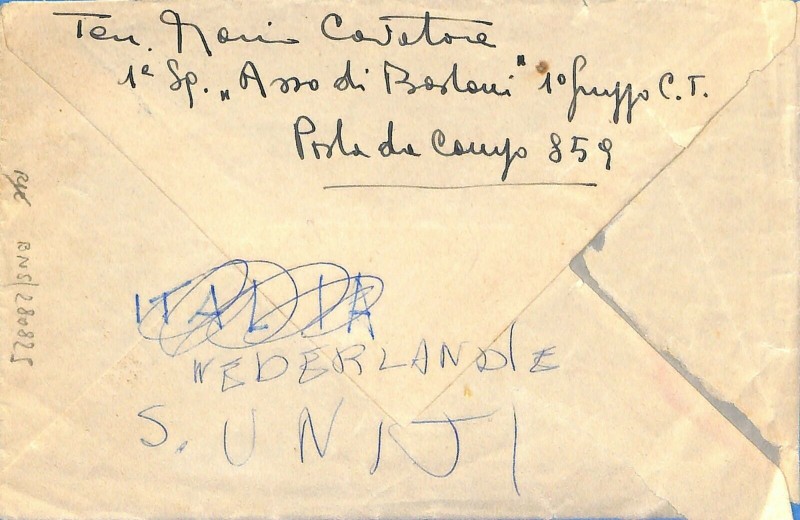 Ten. Mario Cavatore
1ª Sq. „Asso di Bastoni" 1º Gruppo C.T.
Posta da Campo 859
ITALIA
NEDERLANDIE
S. UNITI
BNS/280825